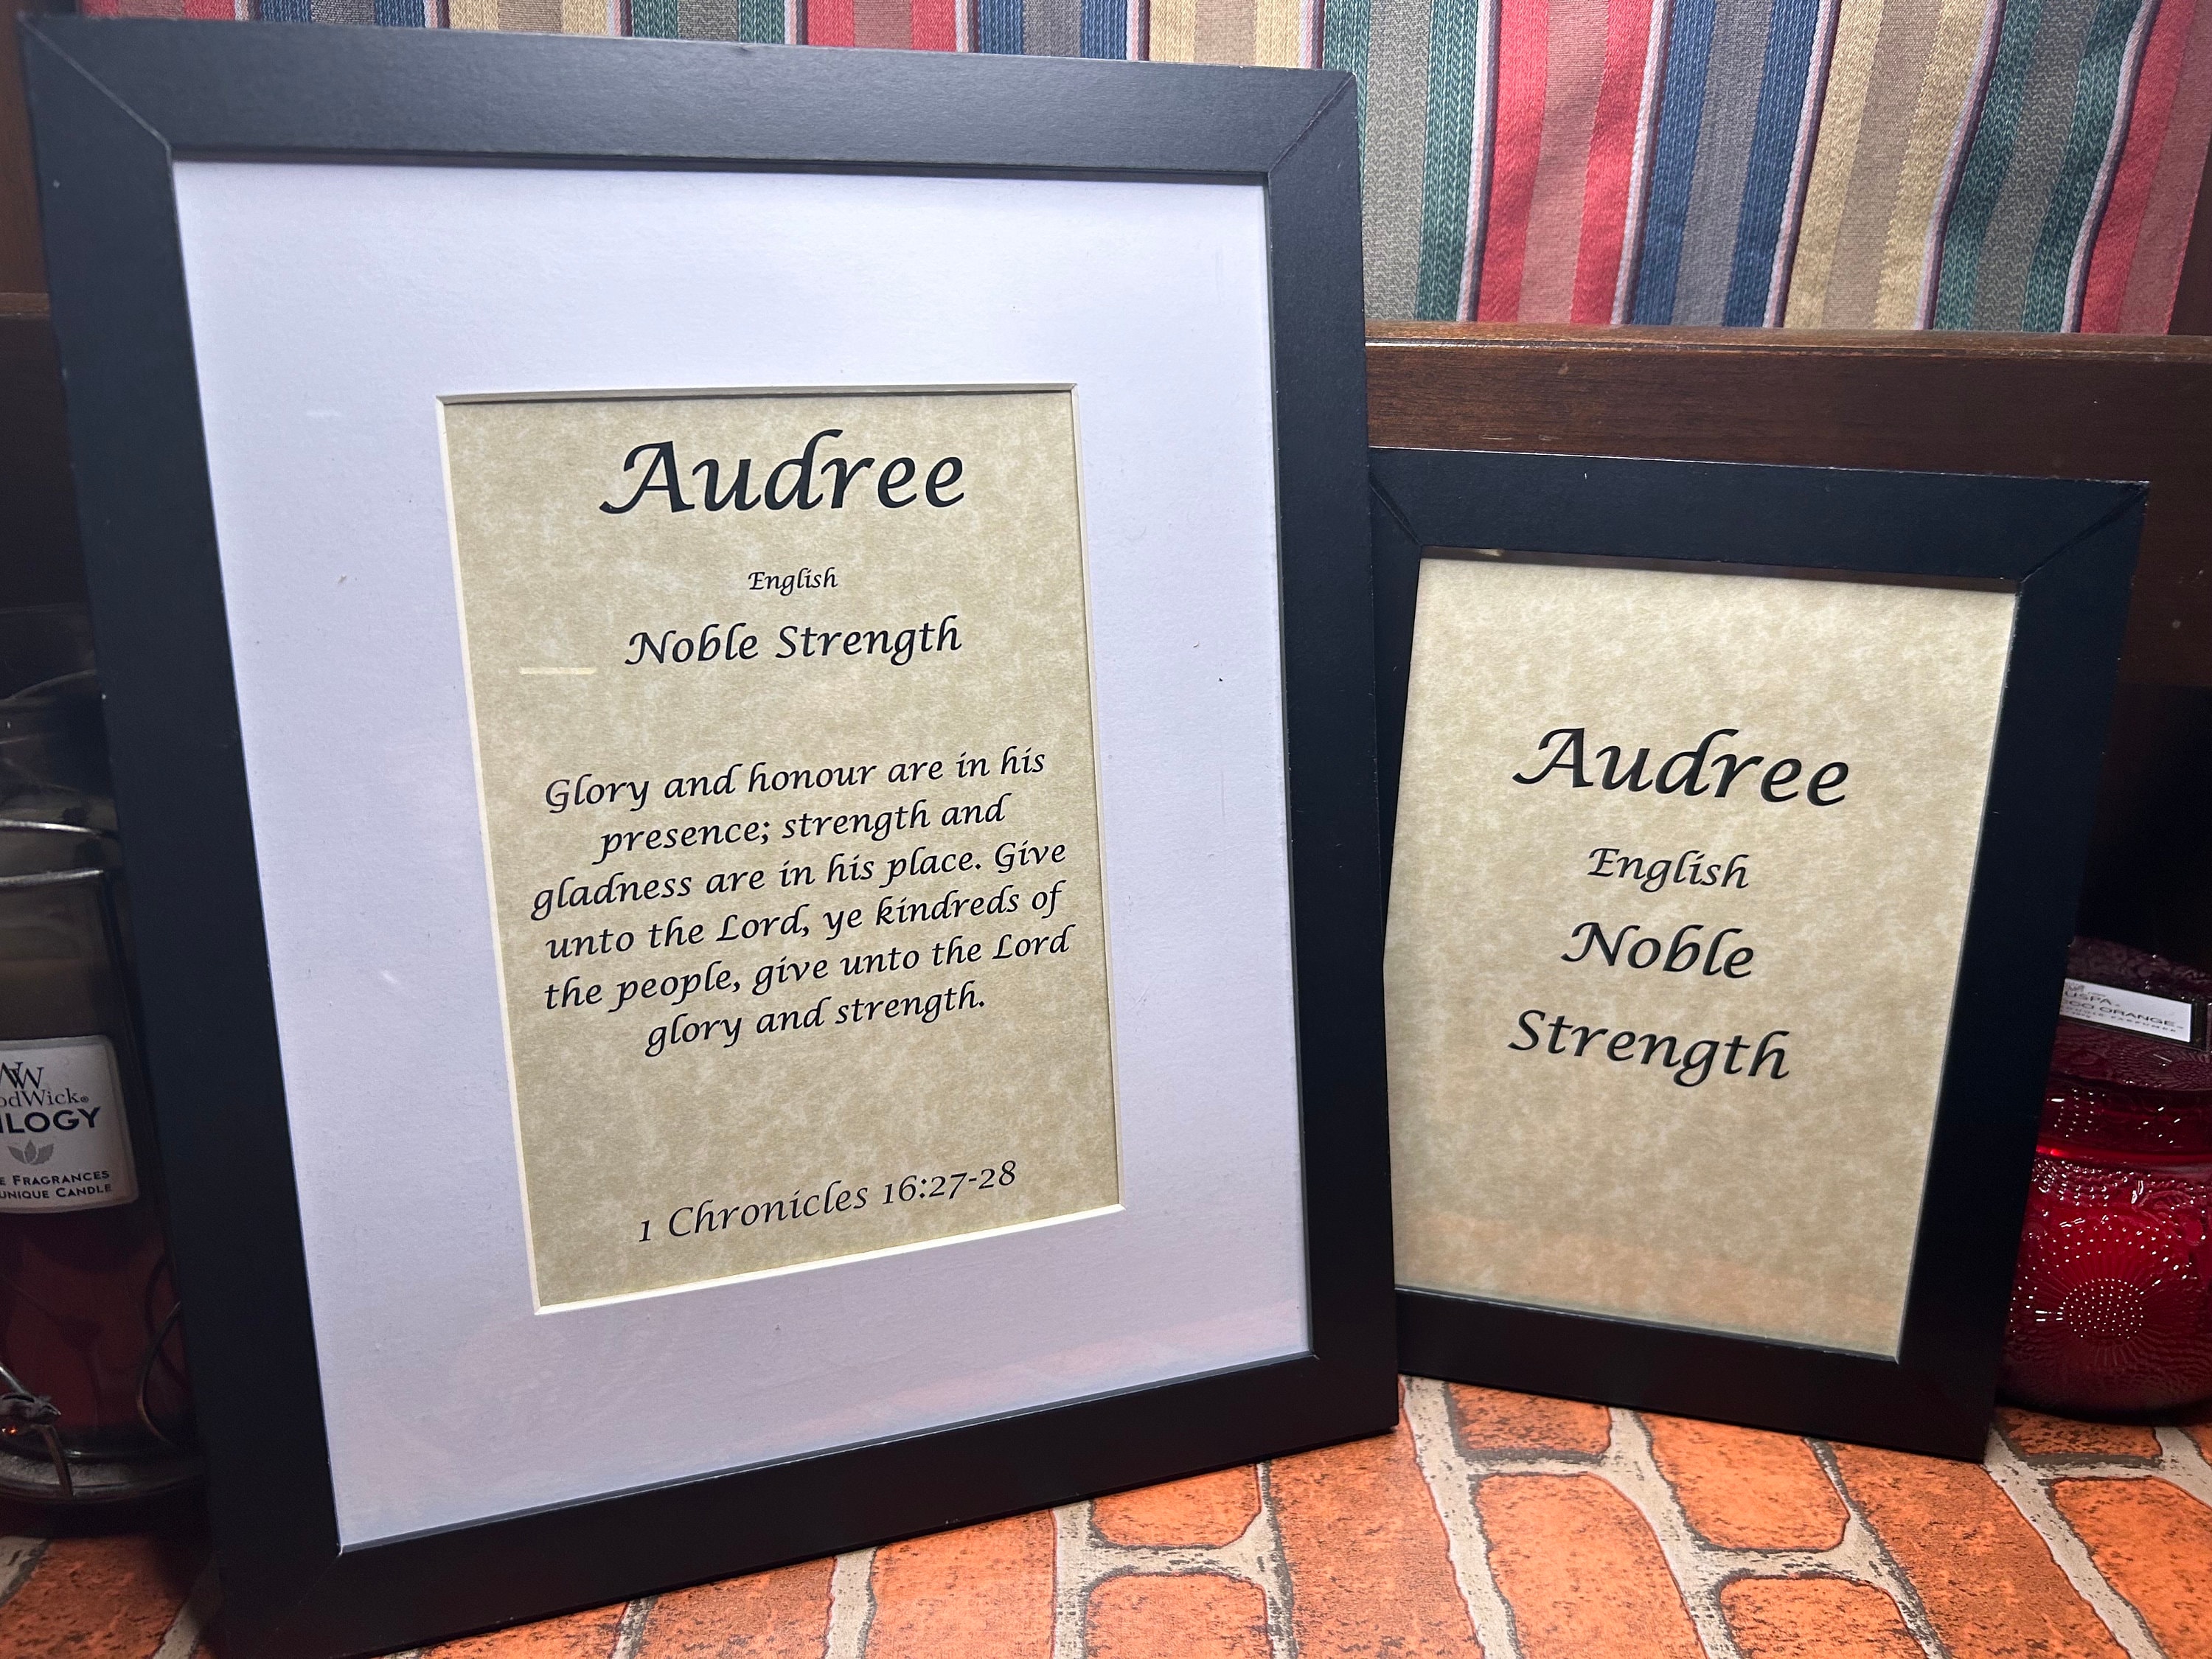 Audree
English
Noble Strength
Glory and honour are in his
presence; strength and
gladness are in his place. Give
unto the Lord, ye kindreds of
the people, give unto the Lord
glory and strength.
1 Chronicles 16:27-28
Audree
English
Noble
Strength
WW
odWick®
ILOGY
E FRAGRANCES
UNIQUE CANDLE
USPA
ORANGE